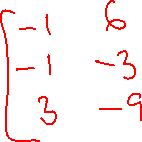 -1 6
-1 -3
3 -9